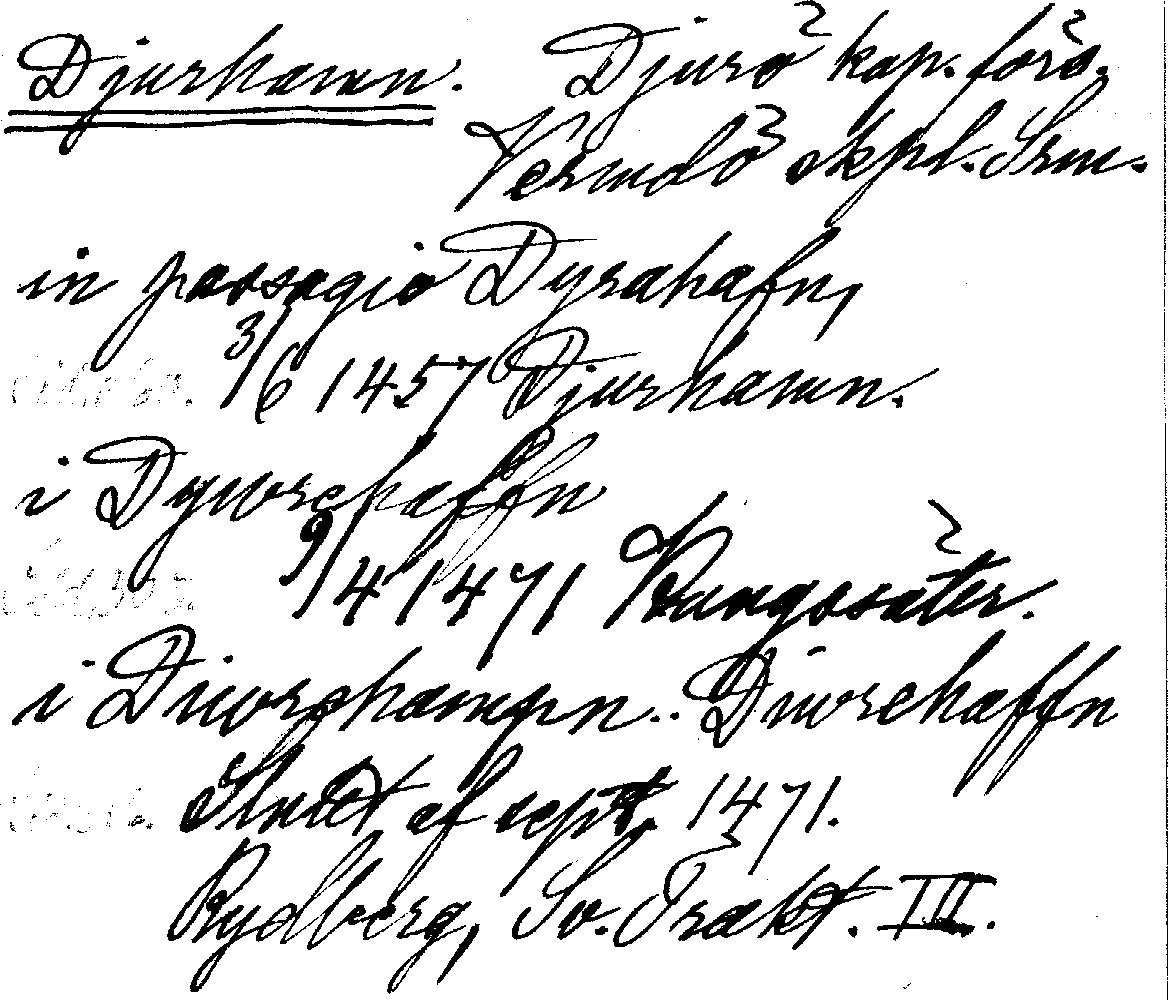 Djurhamn. Djurö kap. förs.
Vermdö skpl. Srm.
in passagio Dyrahafn,
3/6 1457 Djurhamn.
i Dywrehaffn
9/4 1471 Kungssäter.
i Diwrehampn.. Diwrehaffn
Slutet af sept. 1471.
Rydberg, Sv. Trakt. III.